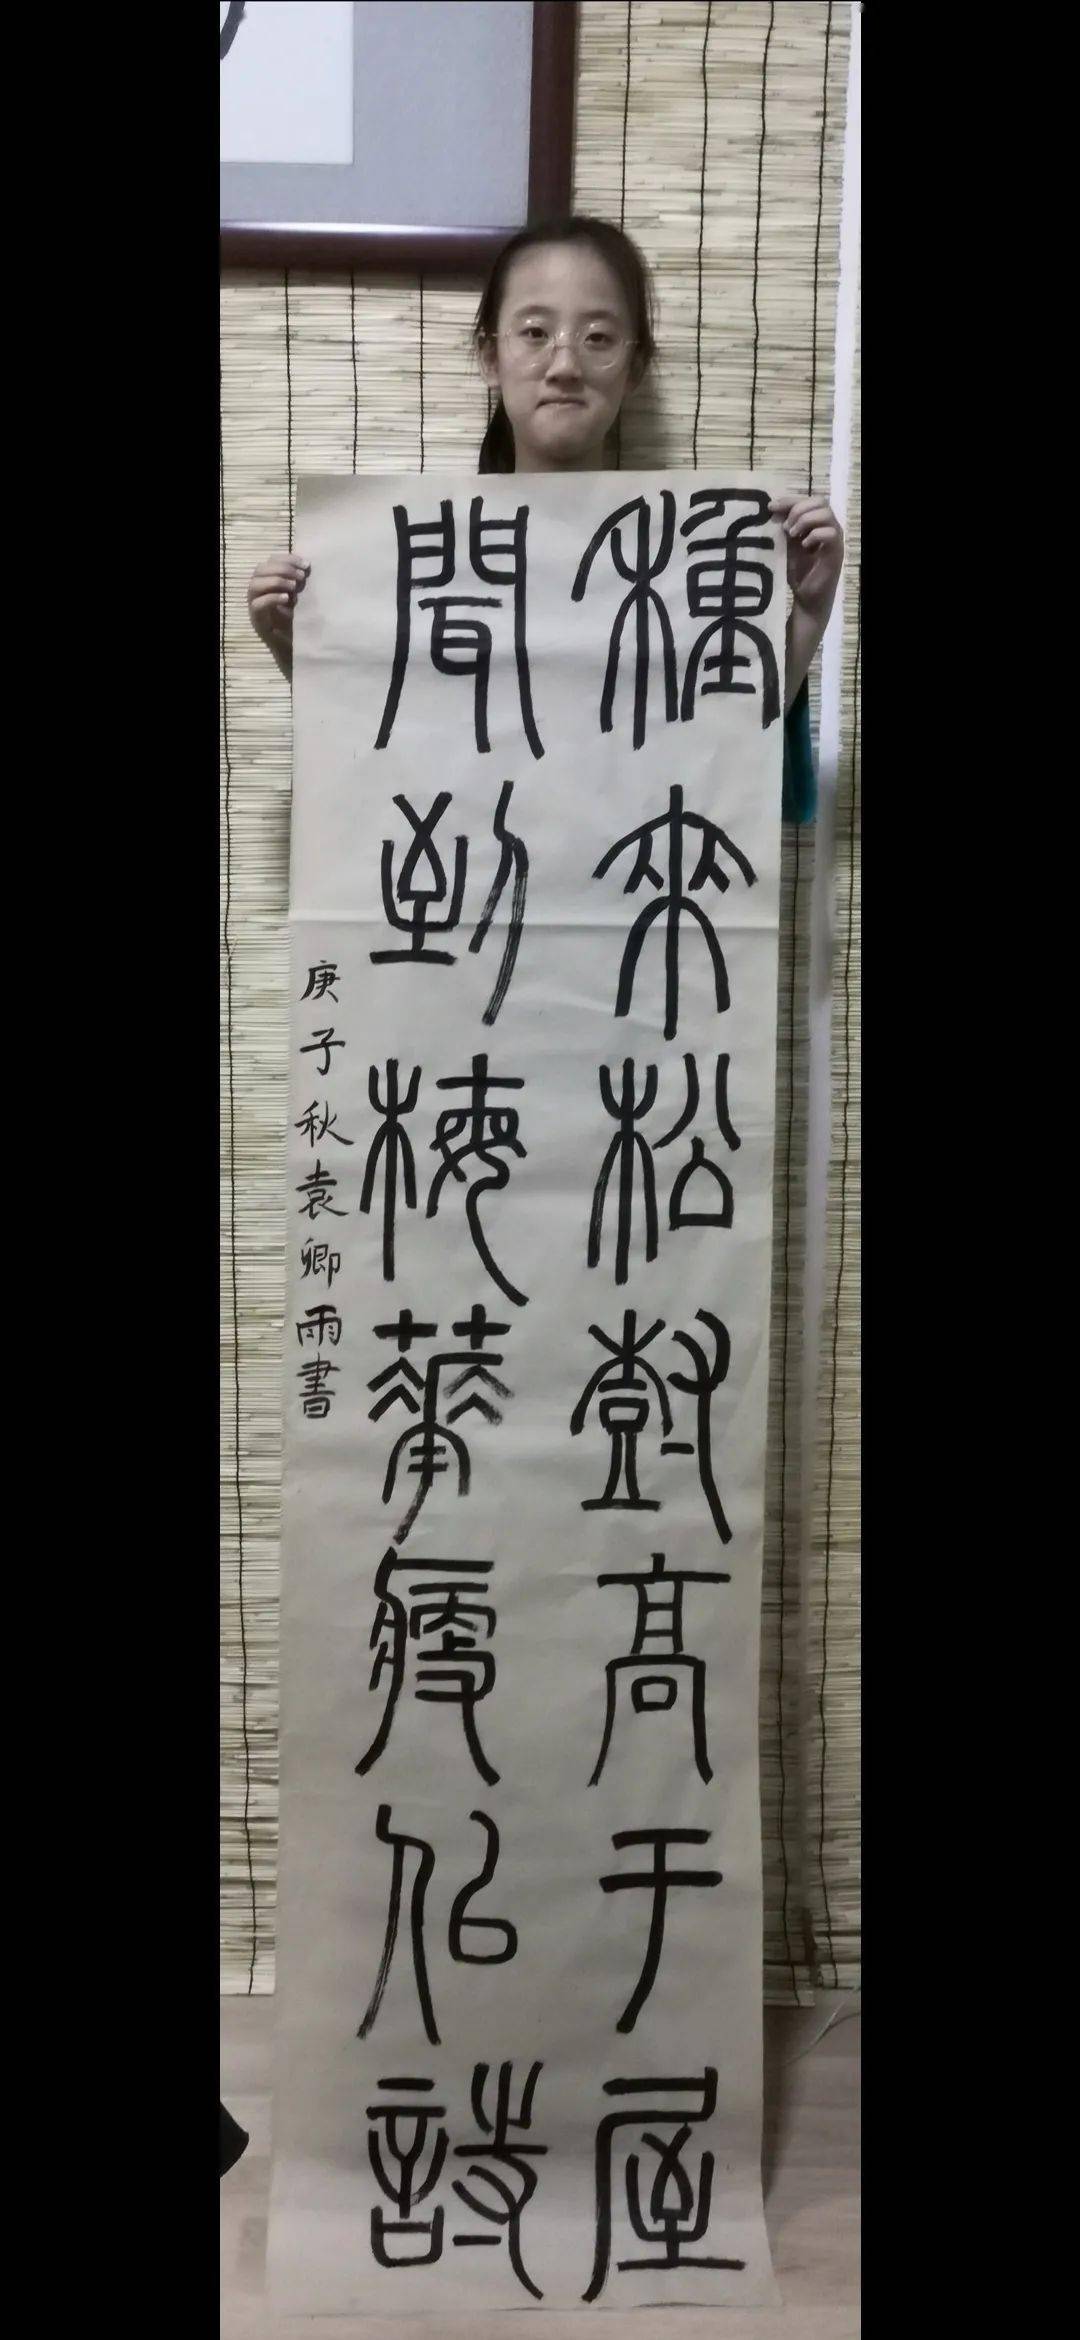 種來松樹高于屋
聞到梅華瘦似詩
庚子秋袁卿雨書